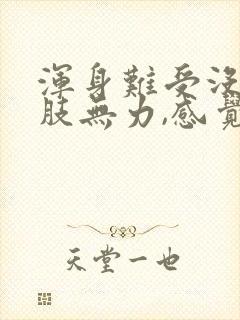 渾身難受沒
肢無力,感覺
天堂一也